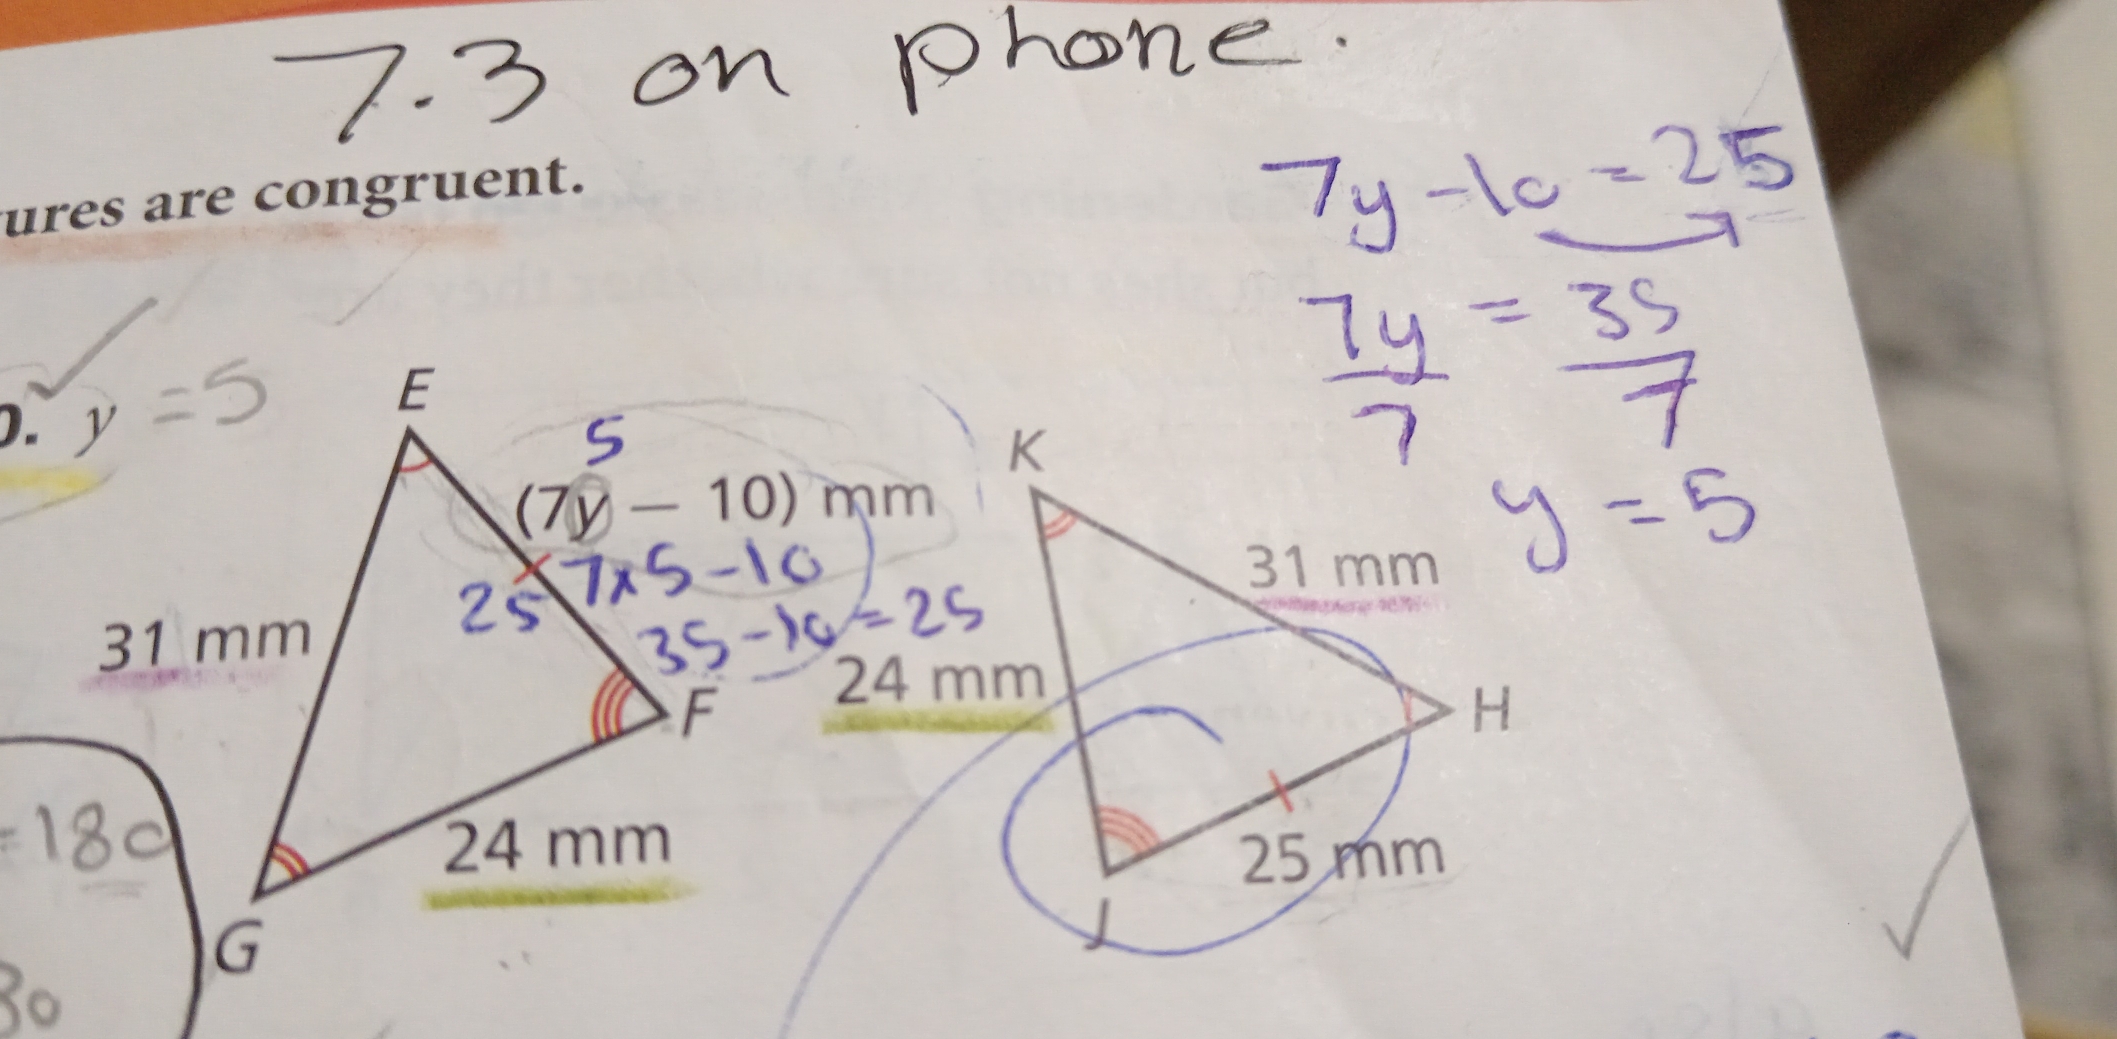 7.3 on phone.
ures are congruent.
7y - 10 = 25
7y = 35
7 7
y = 5
y = 5
E
5
(7y – 10) mm
25 7x5-10
35-10=25
31 mm
F
24 mm
G
K
31 mm
24 mm
H
25 mm
J
=180
80